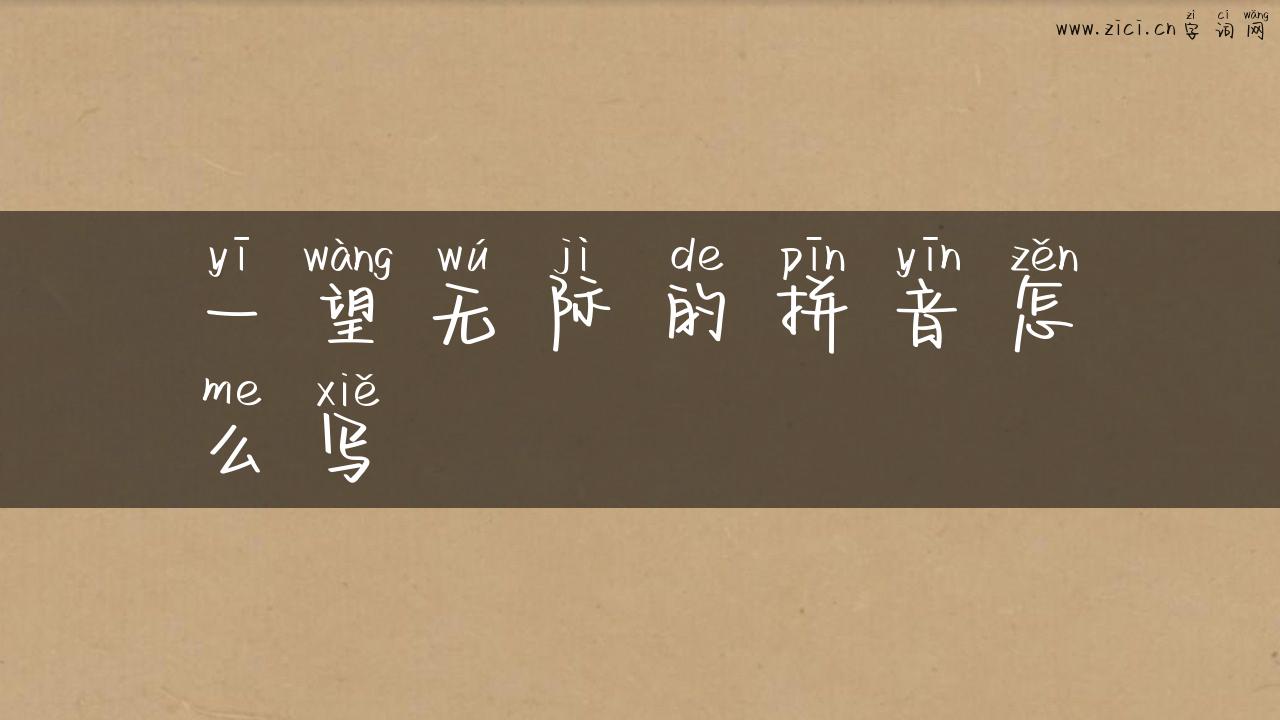 zì cí wǎng
www.zici.cn 字词网
yī wàng wú jì de pīn yīn zěn
一望无际的拼音怎
me xiě
么写